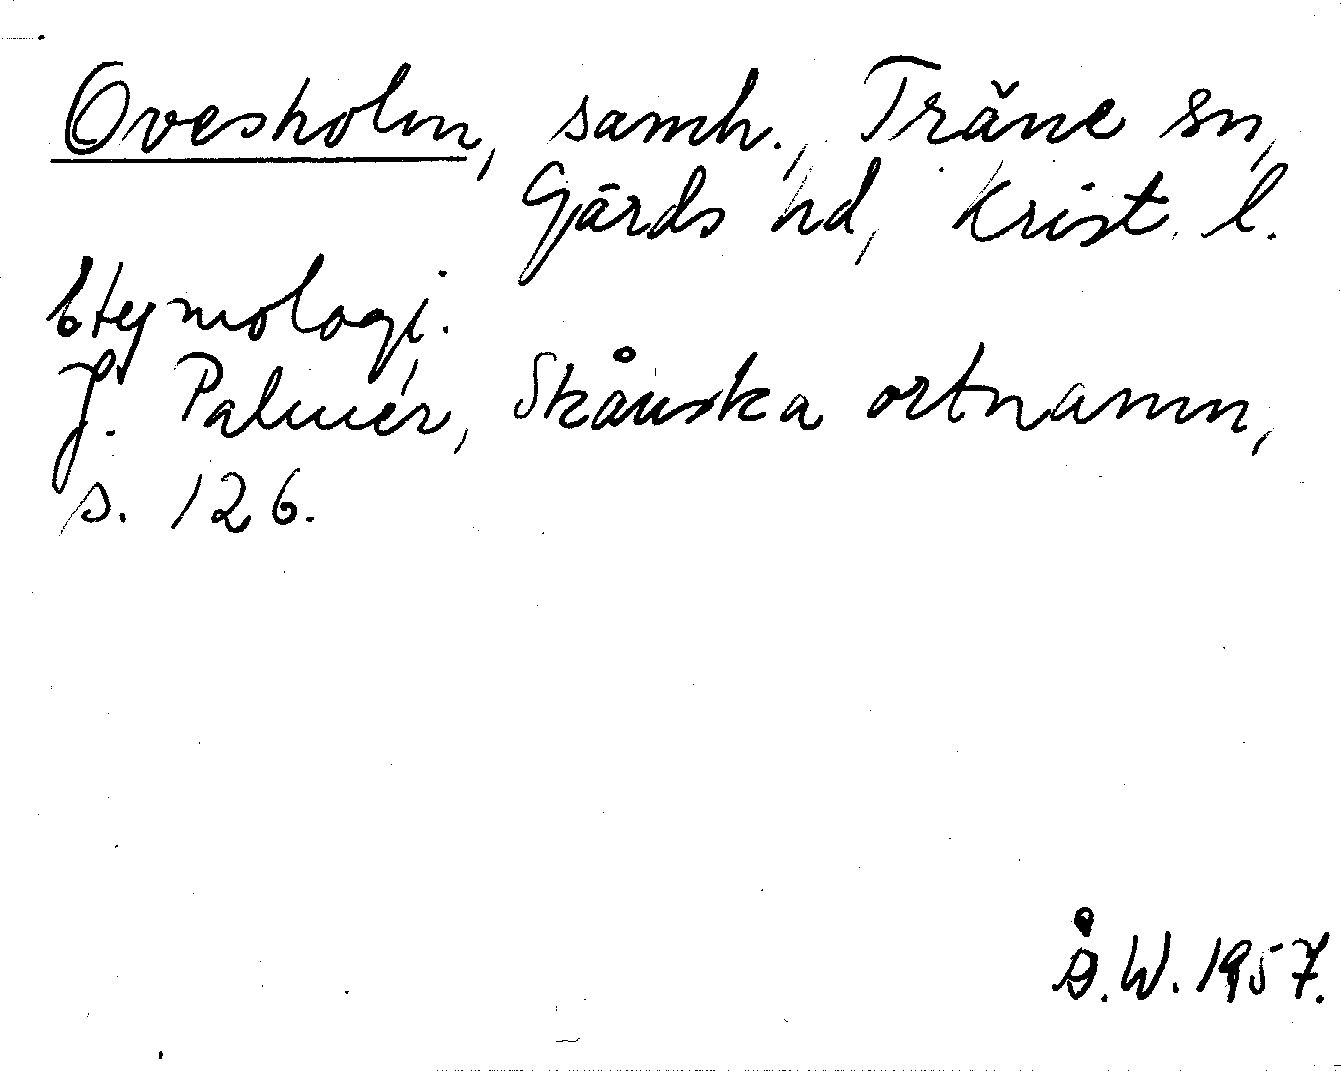 Ovesholm, samh., Träne sn,
Gärds hd, Krist. l.
Etymologi.
J. Palmér, Skånska ortnamn,
s. 126.
Å.W. 1957.